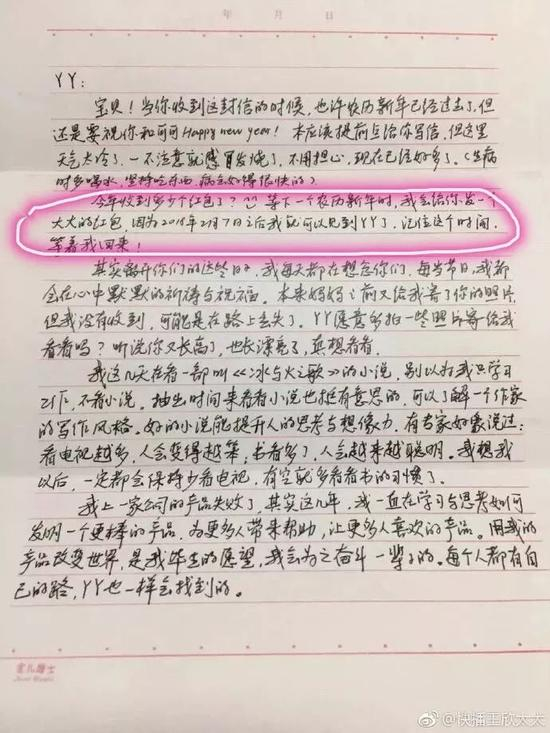 年 月 日
YY：
宝贝！当你收到这封信的时候，也许农历新年已经过去了，但
还是要祝你和可可Happy new year！本应该提前点给你写信，但这里
天气太冷了，一不注意就感冒发烧了，不用担心，现在已经好多了。（生病
时多喝水，坚持吃东西，病会好得很快的）
今年收到多少个红包了？等下一个农历新年时，我会给你发一个
大大的红包，因为2018年2月7日之后我就可以见到YY了，记住这个时间，
等着我回来！
其实离开你们的这些日子，我每天都在想念你们，每当节日，我都
会在心中默默的祈祷与祝福。本来妈妈之前又给我寄了你的照片，
但我没有收到，可能是在路上丢失了。YY愿意多拍一些照片寄给我
看看吗？听说你又长高了，也长漂亮了，真想看看。
我这几天在看一部叫《冰与火之歌》的小说，别以为我只学习
工作，不看小说。抽出时间来看看小说也挺有意思的，可以了解一个作家
的写作风格。好的小说能提升人的思考与想像力。有专家好象说过：
看电视越多，人会变得越笨，书看多了，人会越来越聪明。我想我
以后，一定都会保持少看电视，有空就多看看书的习惯了。
我上一家公司的产品失败了，其实这几年，我一直在学习与思考如何
发明一个更棒的产品，为更多人带来帮助，让更多人喜欢的产品。用我的
产品改变世界，是我毕生的愿望，我会为之奋斗一辈子的。每个人都有自
己的路，YY也一样会找到的。
@快播王欣太太